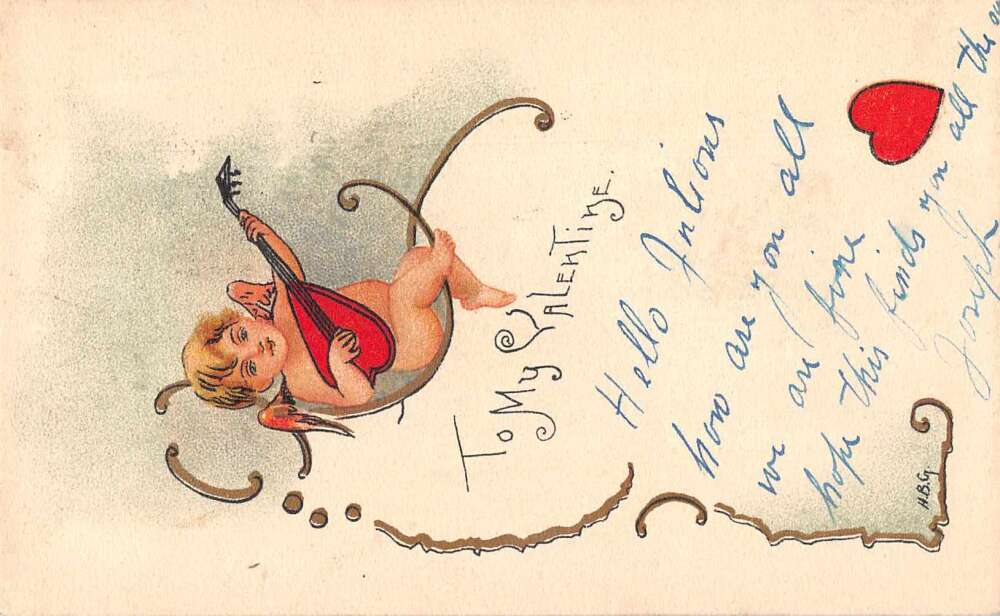 To My Valentine.
Hello
how are you all
we are fine
hope this finds you all the
Joseph
H.B.G